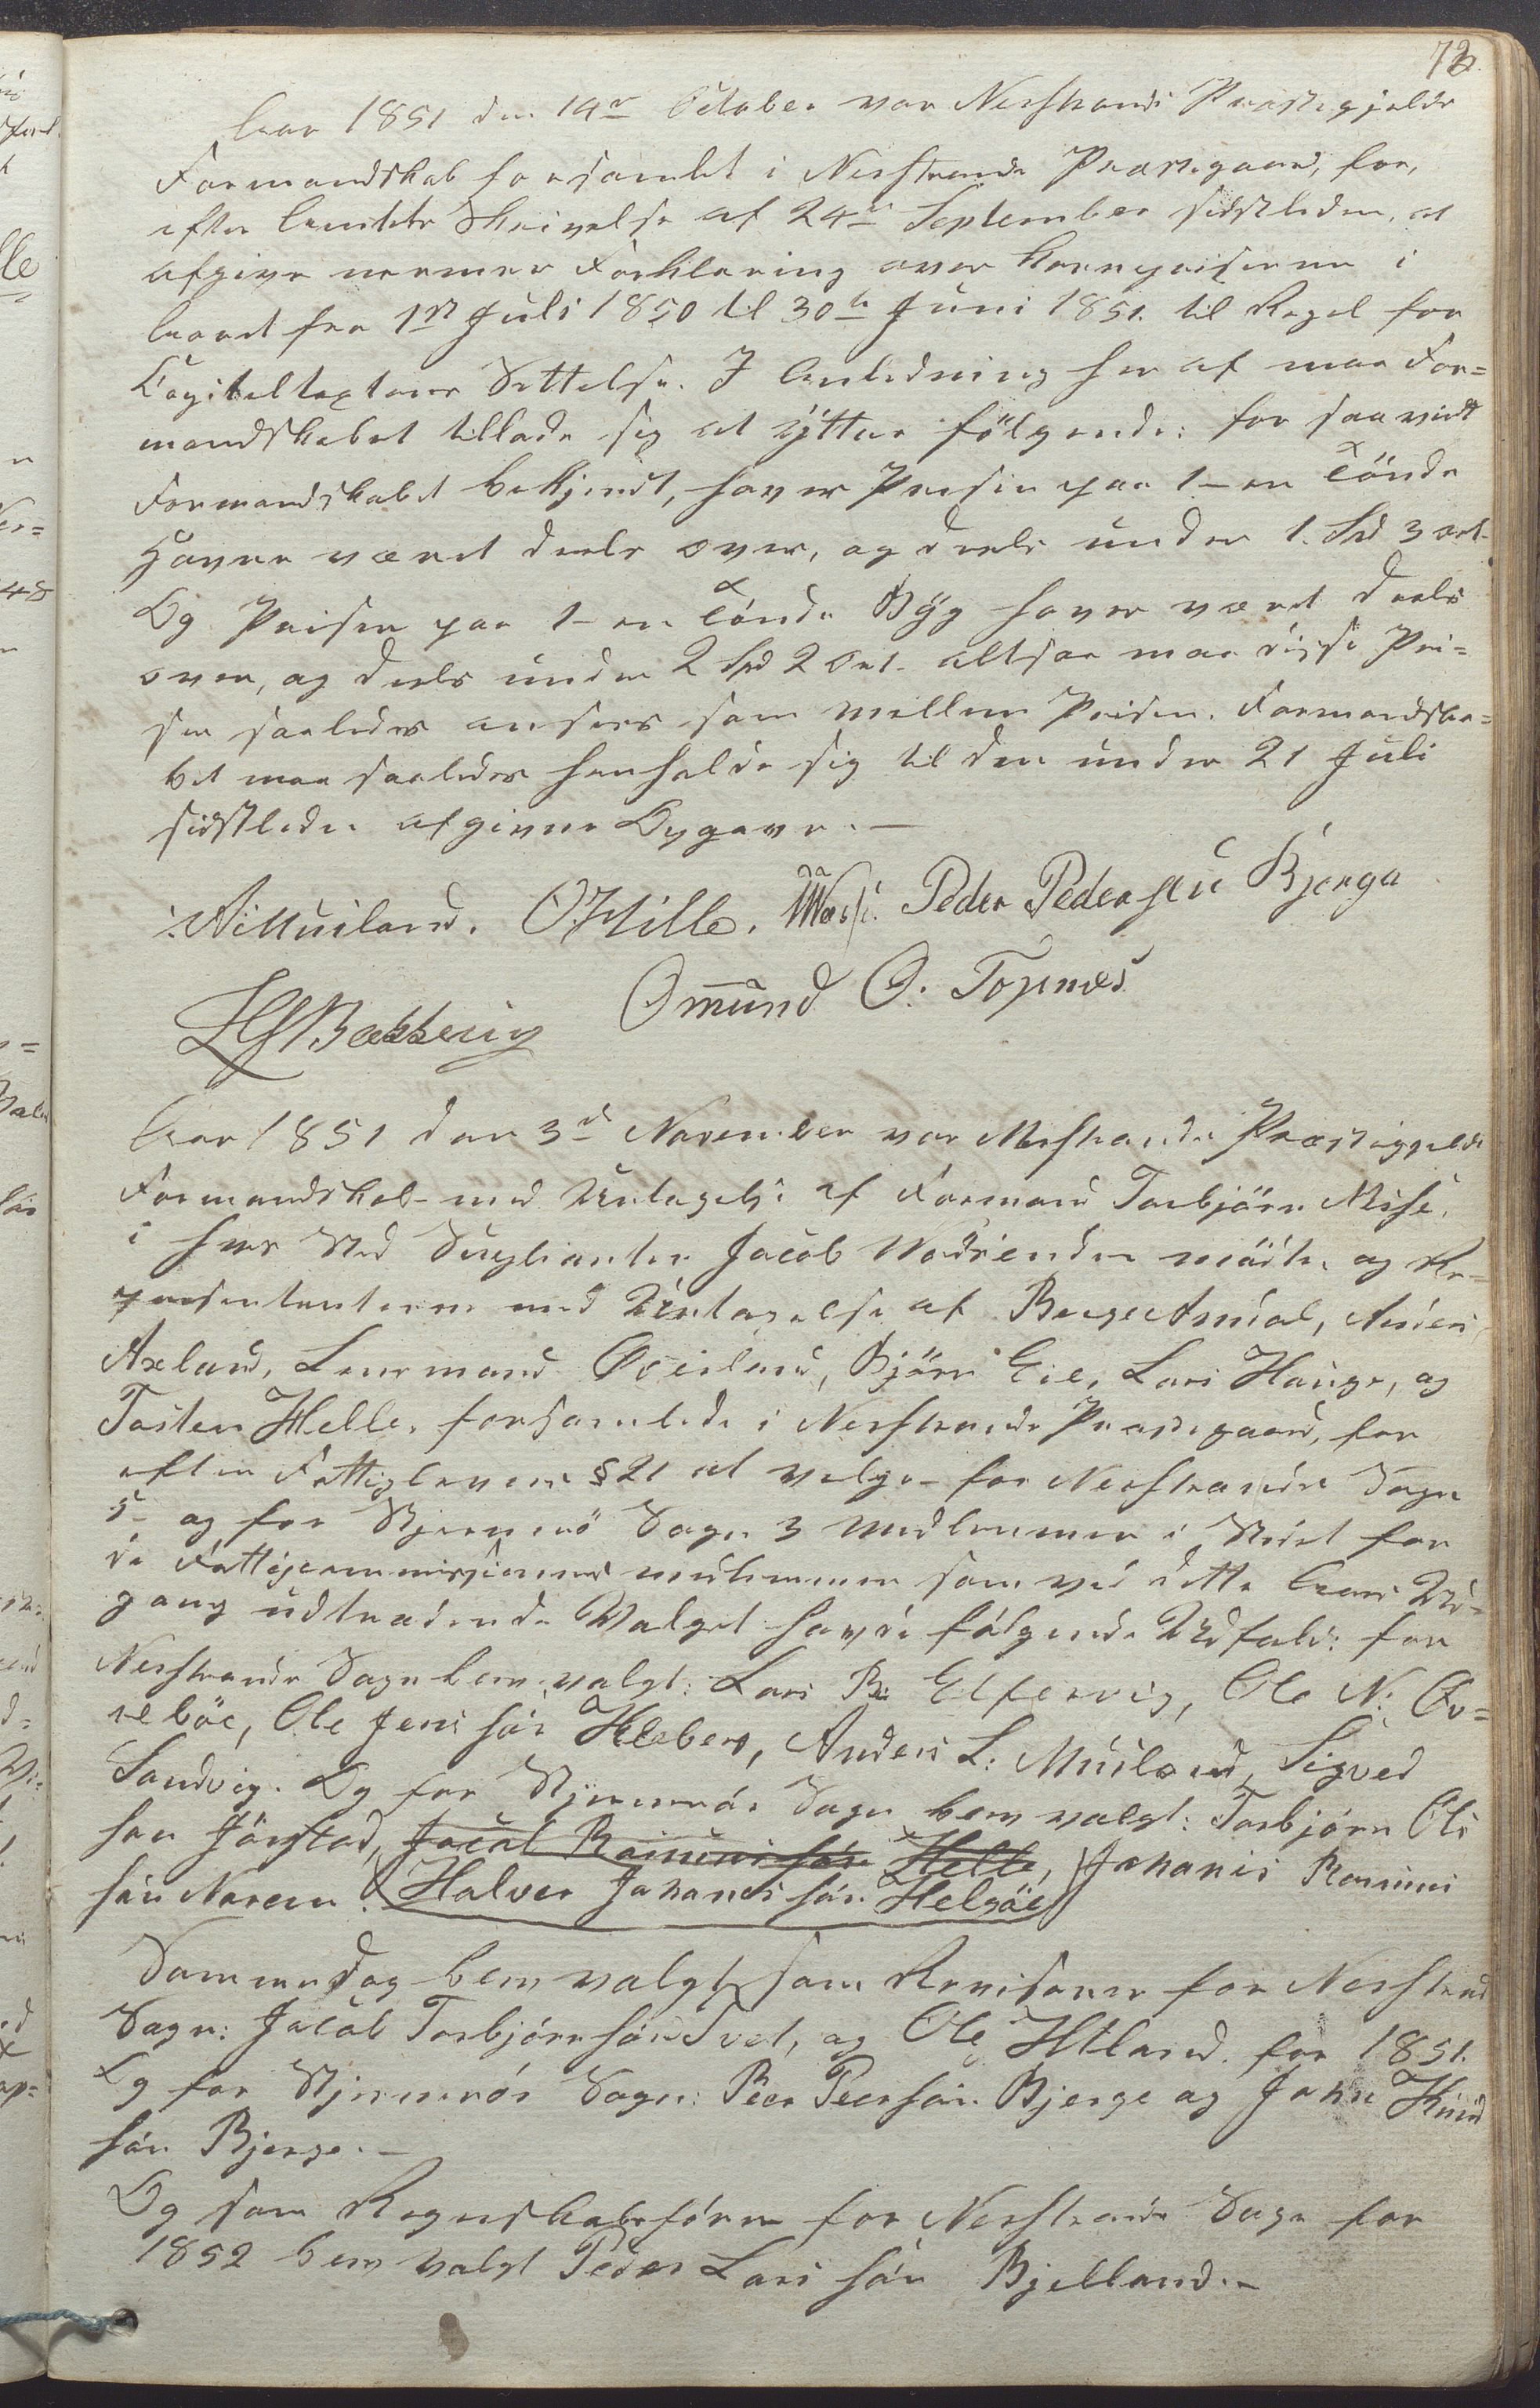 72.
Aar 1851 den 14de October var Nerstrands Præstegjelds
Formandskab forsamlet i Nerstrands Præstegaard, for,
efter Amtets Skrivelse af 24de September sidstleden, at
afgive nermer Forklaring over Kornpriserne i
Aaret fra 1ste Juli 1850 til 30te Juni 1851. til Regel for
Capiteltaxtens Settelse. I Anledning her af maa For=
mandskabet tillade sig at yttre fölgende: for saavidt
Formandskabet bekjendt, haver Prisen paa 1- en Tönde
Havre været deels over, og deels under 1. Spd 3 ort.
Og Prisen paa 1- en Tönde Byg haver været deels
over, og deels under 2 Spd 2 Ort. altsaa maa disse Pri=
ser saaledes ansees som mellem Priser. Formandska=
bet maa saaledes henholde sig til den under 21 Juli
sidstleden afgivne Opgave. —
O Hille. Peder Pedersen Bjerga
Omund O. Topnes
HG Bækkevig
Aar 1851 den 3de November var Nerstrands Præstegjelds
Formandskab- med Undtagelse af Formand Torbjörn Nessé,
i hvis Sted Supleanten Jacob mödte, og Re=
presentanterne med Undtagelse af Berge Amdal, Anders
Axland, Lensmand Øveiland, Björn Eie, Lars Hauge, og
Tosten Helle, forsamlede i Nerstrands Præstegaard, for
efter Fattiglovens § 21 at velge for Nerstrands Sogn
5- og for Sjernerö Sogn 3 Medlemmer i Stedet for
de Fattigcommissionens medlemmer som ved dette Aars Ud=
gang udtrædende Valget havde fölgende Udfald: for
Nerstrands Sogn blev valgt: Lars B: Elfervig, Ole N: Øv=
reböe, Ole Jens sön Hleber, Anders L: Muiland, Sigved
Sandvig. Og for Sjernerös Sogn blev valgt: Torbjörn Ols
sen Jörstad, Jacob Rasmus sön Helle, Johanis Rasmus
sön Norem. Halver Johanes sön Helgöe
Samme Dag blev valgt som Revisorer for Nerstrand
Sogn: Jacob Torbjörn sön Tvet, og Ole Htland. for 1851.
Og for Sjernerös Sogn: Peer Peersön Bjerge og John Knud
sön Bjerge. —
Og som Regnskabsförer for Nerstrands Sogn for
1852 blev valgt Peder Lars sön Bjelland. —